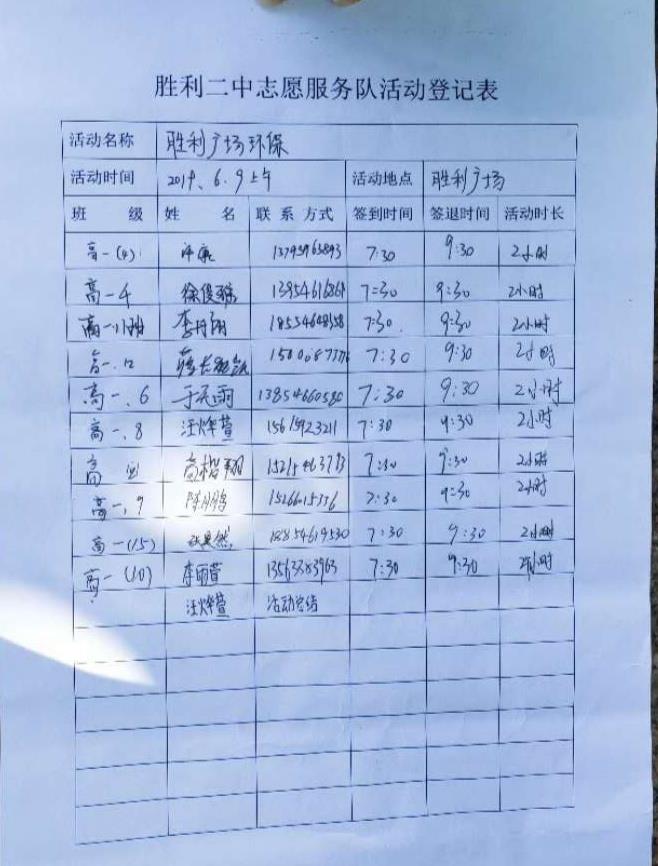 胜利二中志愿服务队活动登记表
活动名称 胜利广场环保
活动时间 2019、6.9上午 活动地点 胜利广场
班 级 姓 名 联系方式 签到时间 签退时间 活动时长
高一(4) 7:30 9:30 2小时
高一4 徐俊 7:30 9:30 2小时
高一11班 李丹翔 7:30. 9:30 2小时
7:30 9:30 2小时
高一.6 于天雨 13854660580 7:30 9:30 2小时
高一.8 汪烨萱 15615923211 7:30 9:30 2小时
高 高楷翔 7:30 9:30 2小时
高一.9 7:30 9:30 2小时
高一(15) 18854619530 7:30 9:30 2小时
高一(10) 李雨萱 13563383963 7:30 9:30 2小时
汪烨萱 活动总结